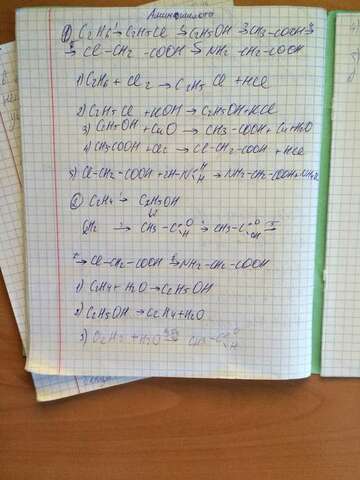 Аминокислоты
① C2H6 →1 C2H5Cl →2 C2H5OH →3 CH3-COOH →4
→4 Cl-CH2-COOH →5 NH2-CH2-COOH
1) C2H6 + Cl2 → C2H5Cl + HCl
2) C2H5Cl + KOH → C2H5OH + KCl
3) C2H5OH + CuO → CH3-COOH + Cu + H2O
4) CH3COOH + Cl2 → Cl-CH2-COOH + HCl
5) Cl-CH2-COOH + 2H-N H H → NH2-CH2-COOH + NH4Cl
② C2H4 → C2H5OH
C2H2 → CH3-C O H → CH3-C O OH →
→ Cl-CH2-COOH → NH2-CH2-COOH
1) C2H4 + H2O → C2H5OH
2) C2H5OH → C2H4 + H2O
3) C2H2 + H2O → CH3-C O H